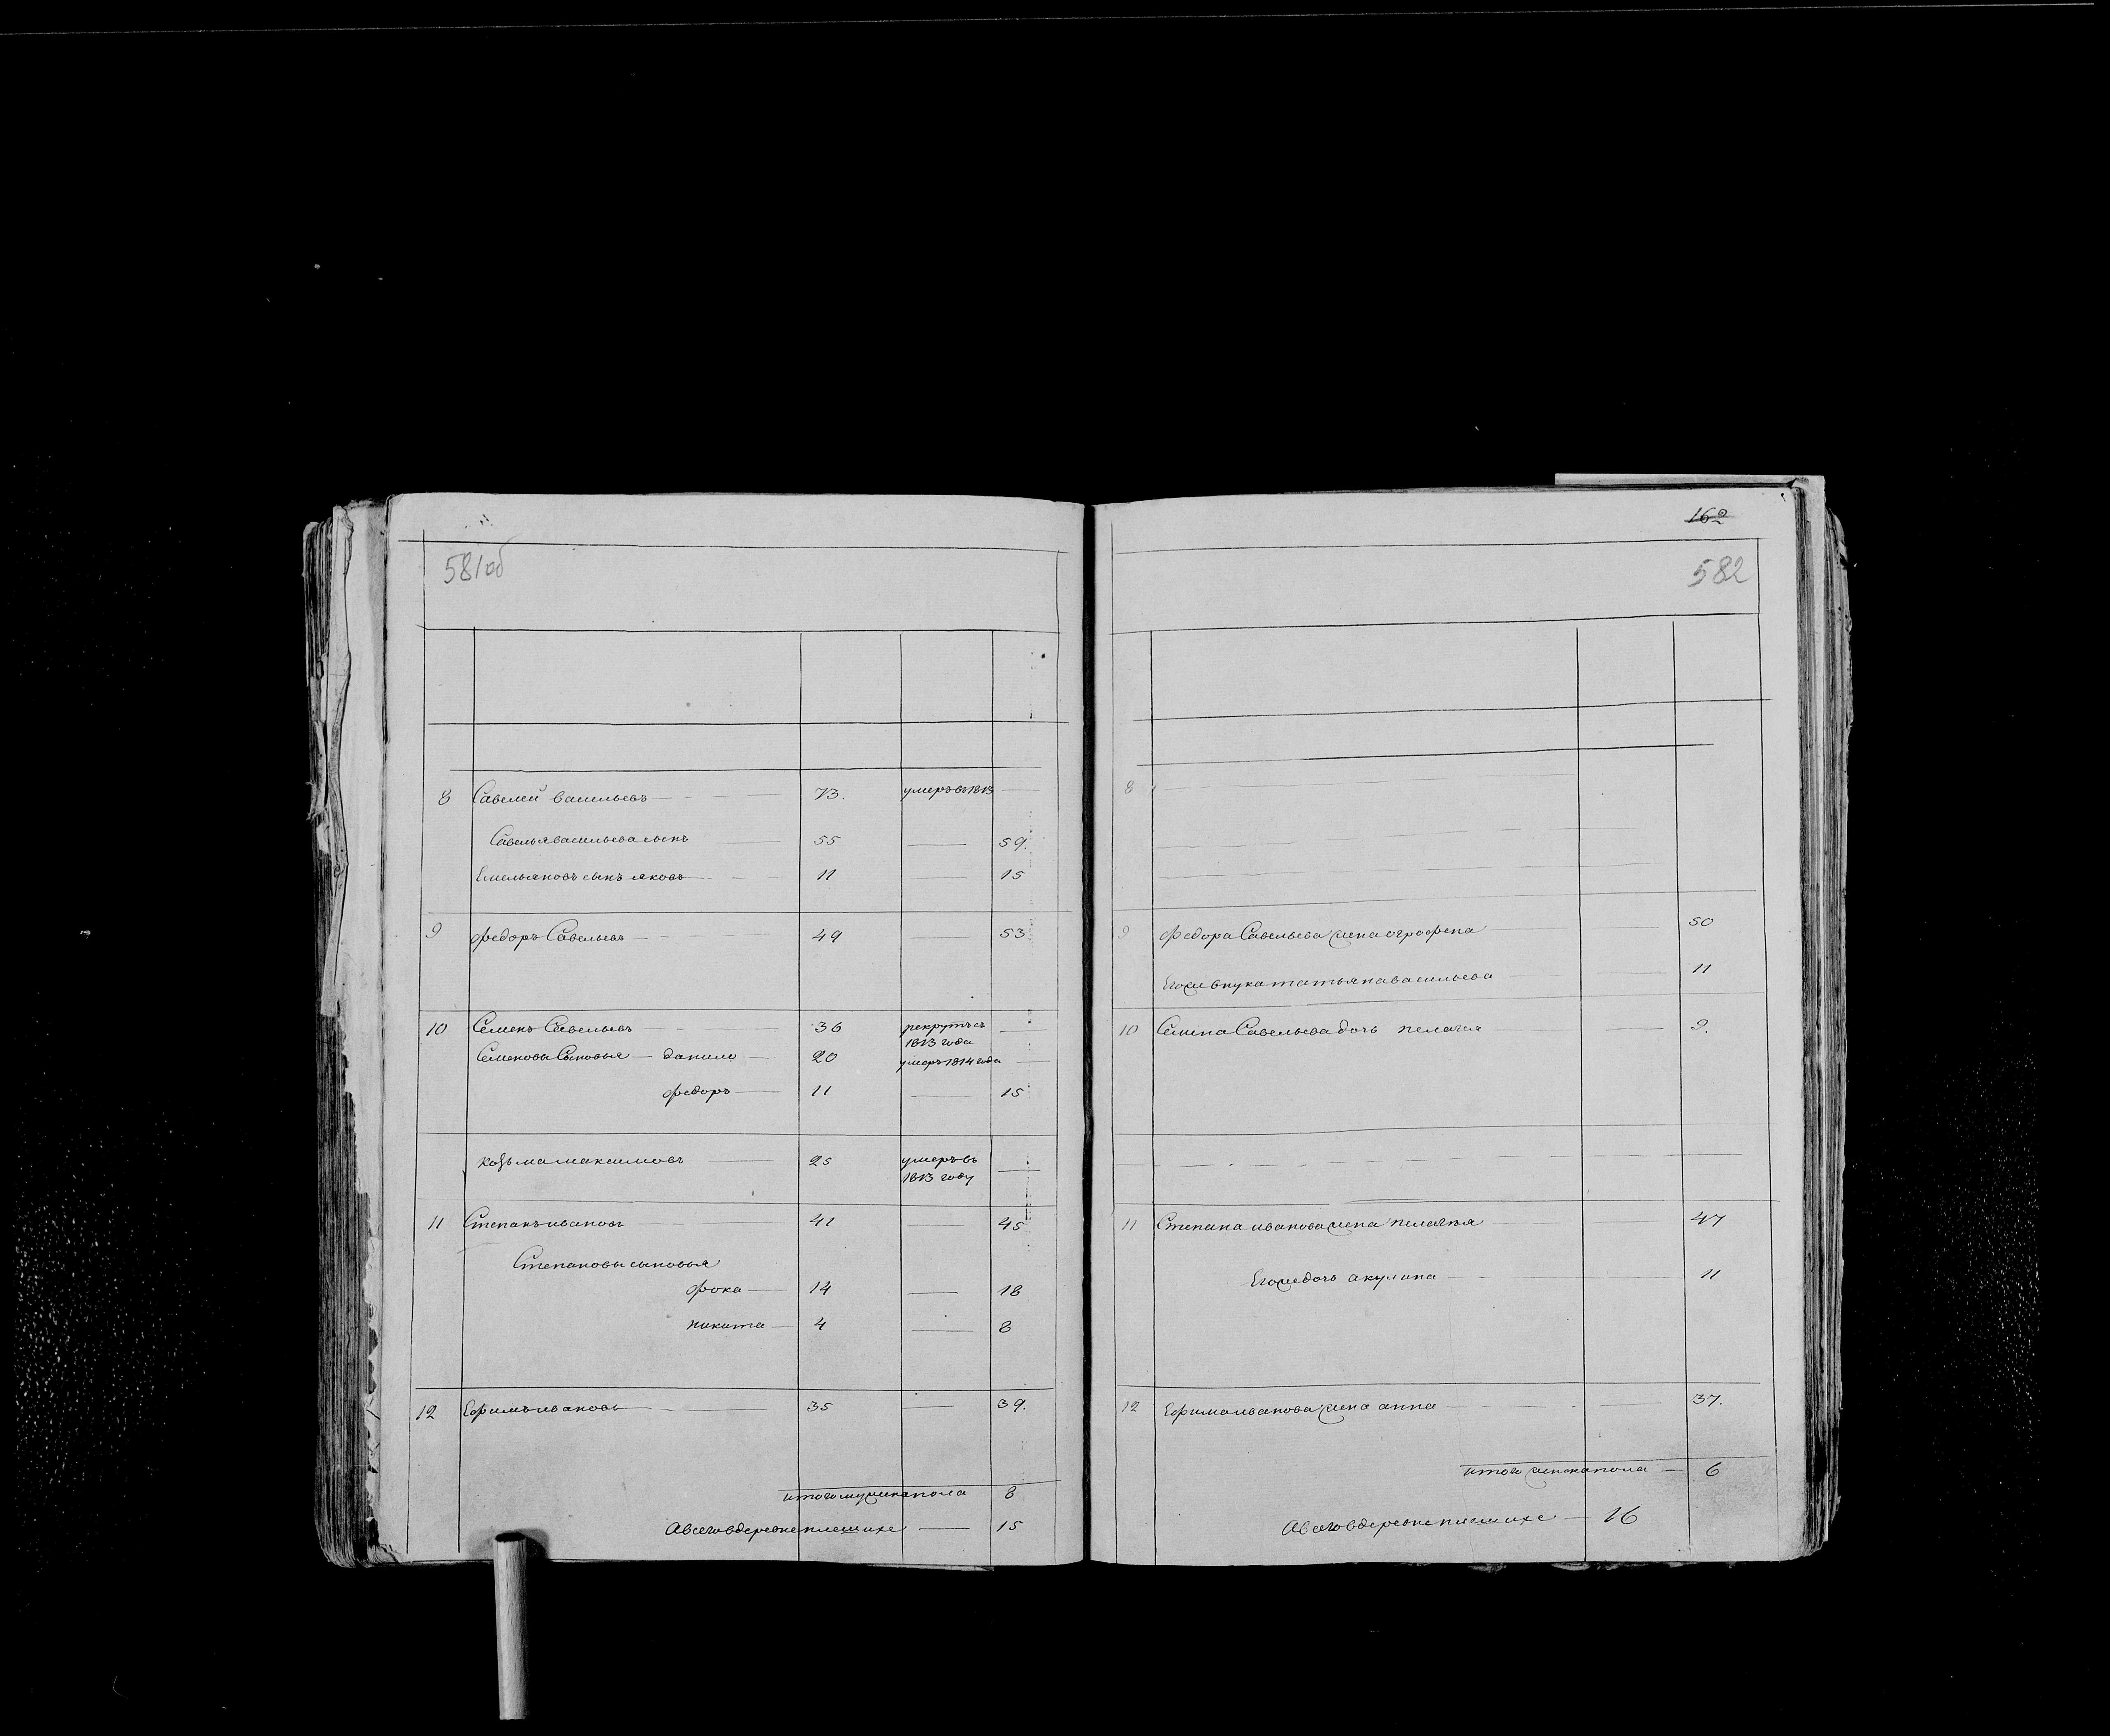 581об
8 Савелей Васильевъ 73. умеръ въ 1813
Савелья васильева сынъ 55 59.
Емельяновъ сынъ яковъ 11 15
9 Федоръ Савельевъ 49 53
10 Семенъ Савельевъ 36 рекрутъ съ 1813 года
Семеновы Сыновья данило 20 умеръ 1814 года
федоръ 11 15
козьма максимовъ 25 умеръ въ 1813 году
11 Степанъ ивановъ 41 45
Степановы сыновья
фока 14 18
никита 4 8
12 Ефимъ ивановъ 35 39.
итого мужска пола 8
А всего в деревне плешихе 15
162
582
8
9 Федора Савельева жена огрофена 50
Его же внука татьяна васильева 11
10 Семена Савельева дочь пелагея 9.
11 Степана иванова жена пелагея 47
Его же дочь акулина 11
12 Ефима иванова жена анна 37.
итого женска пола 6
А всего в деревне плешихе 16